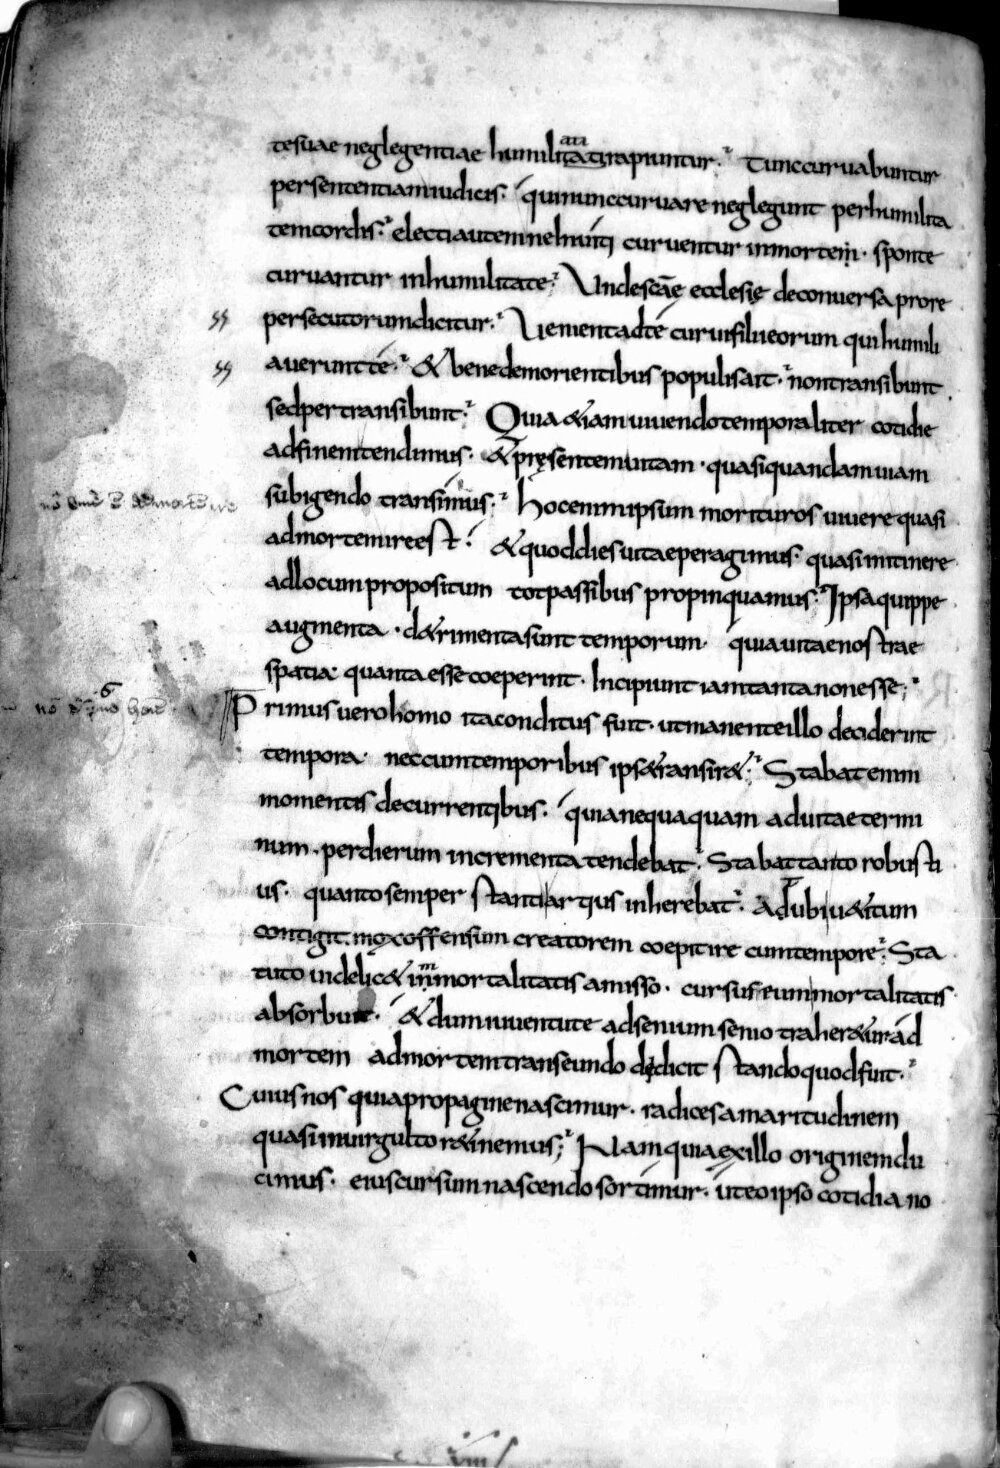 te suae neglegentiae humilitatis rapiuntur. Tunc curuabuntur
per sententiam iudicis. qui nunc curuare neglegunt per humilita
tem cordis. electi autem ne inuiti curuentur in mortem. sponte
curuantur in humilitate. Unde scae ecclesię de conuersa prore
persecutorum dicitur. Uenient ad te curui filii eorum qui humili
auerunt te. & bene de morientibus populis ait. non transibunt
sed pertransibunt. Quia &iam uiuendo temporaliter cotidie
ad finem tendimus. & pręsentem uitam. quasi quandam uiam
subigendo transimus. Hoc enim ipsum morituros uiuere quasi
ad mortem ire est. & quod dies uitae peragimus. quasi in itinere
ad locum propositum tot passibus propinquamus. Ipsa quippe
augmenta. d&rimenta sunt temporum. quia uitae nostrae
spatia quanta esse coeperint. Incipiunt iam tanta non esse;
Primus uero homo ita conditus fuit. ut manente illo deciderint
tempora. nec cum temporibus ipse transir&. Stabat enim
momentis decurrentibus. quia nequaquam ad uitae termi
num. per dierum incrementa tendebat. Stabat tanto robusti
us. quanto semper stanti artius inherebat. At ubi u&itum
contigit. mox offensum creatorem coepit ire cum tempore. Sta
tu to inmortalitatis amisso. cursus eum mortalitatis
absorbuit. & dum iuuentute ad senium senio traher&ur ad
mortem ad mortem transeundo dędicit stando quod fuit.
Cuius nos quia propagine nascimur. radices amaritudinem
quasi in uirgulto r&inemus; Nam quia ex illo originem du
cimus. eius cursum nascendo sortimur. ut eo ipso cotidiano